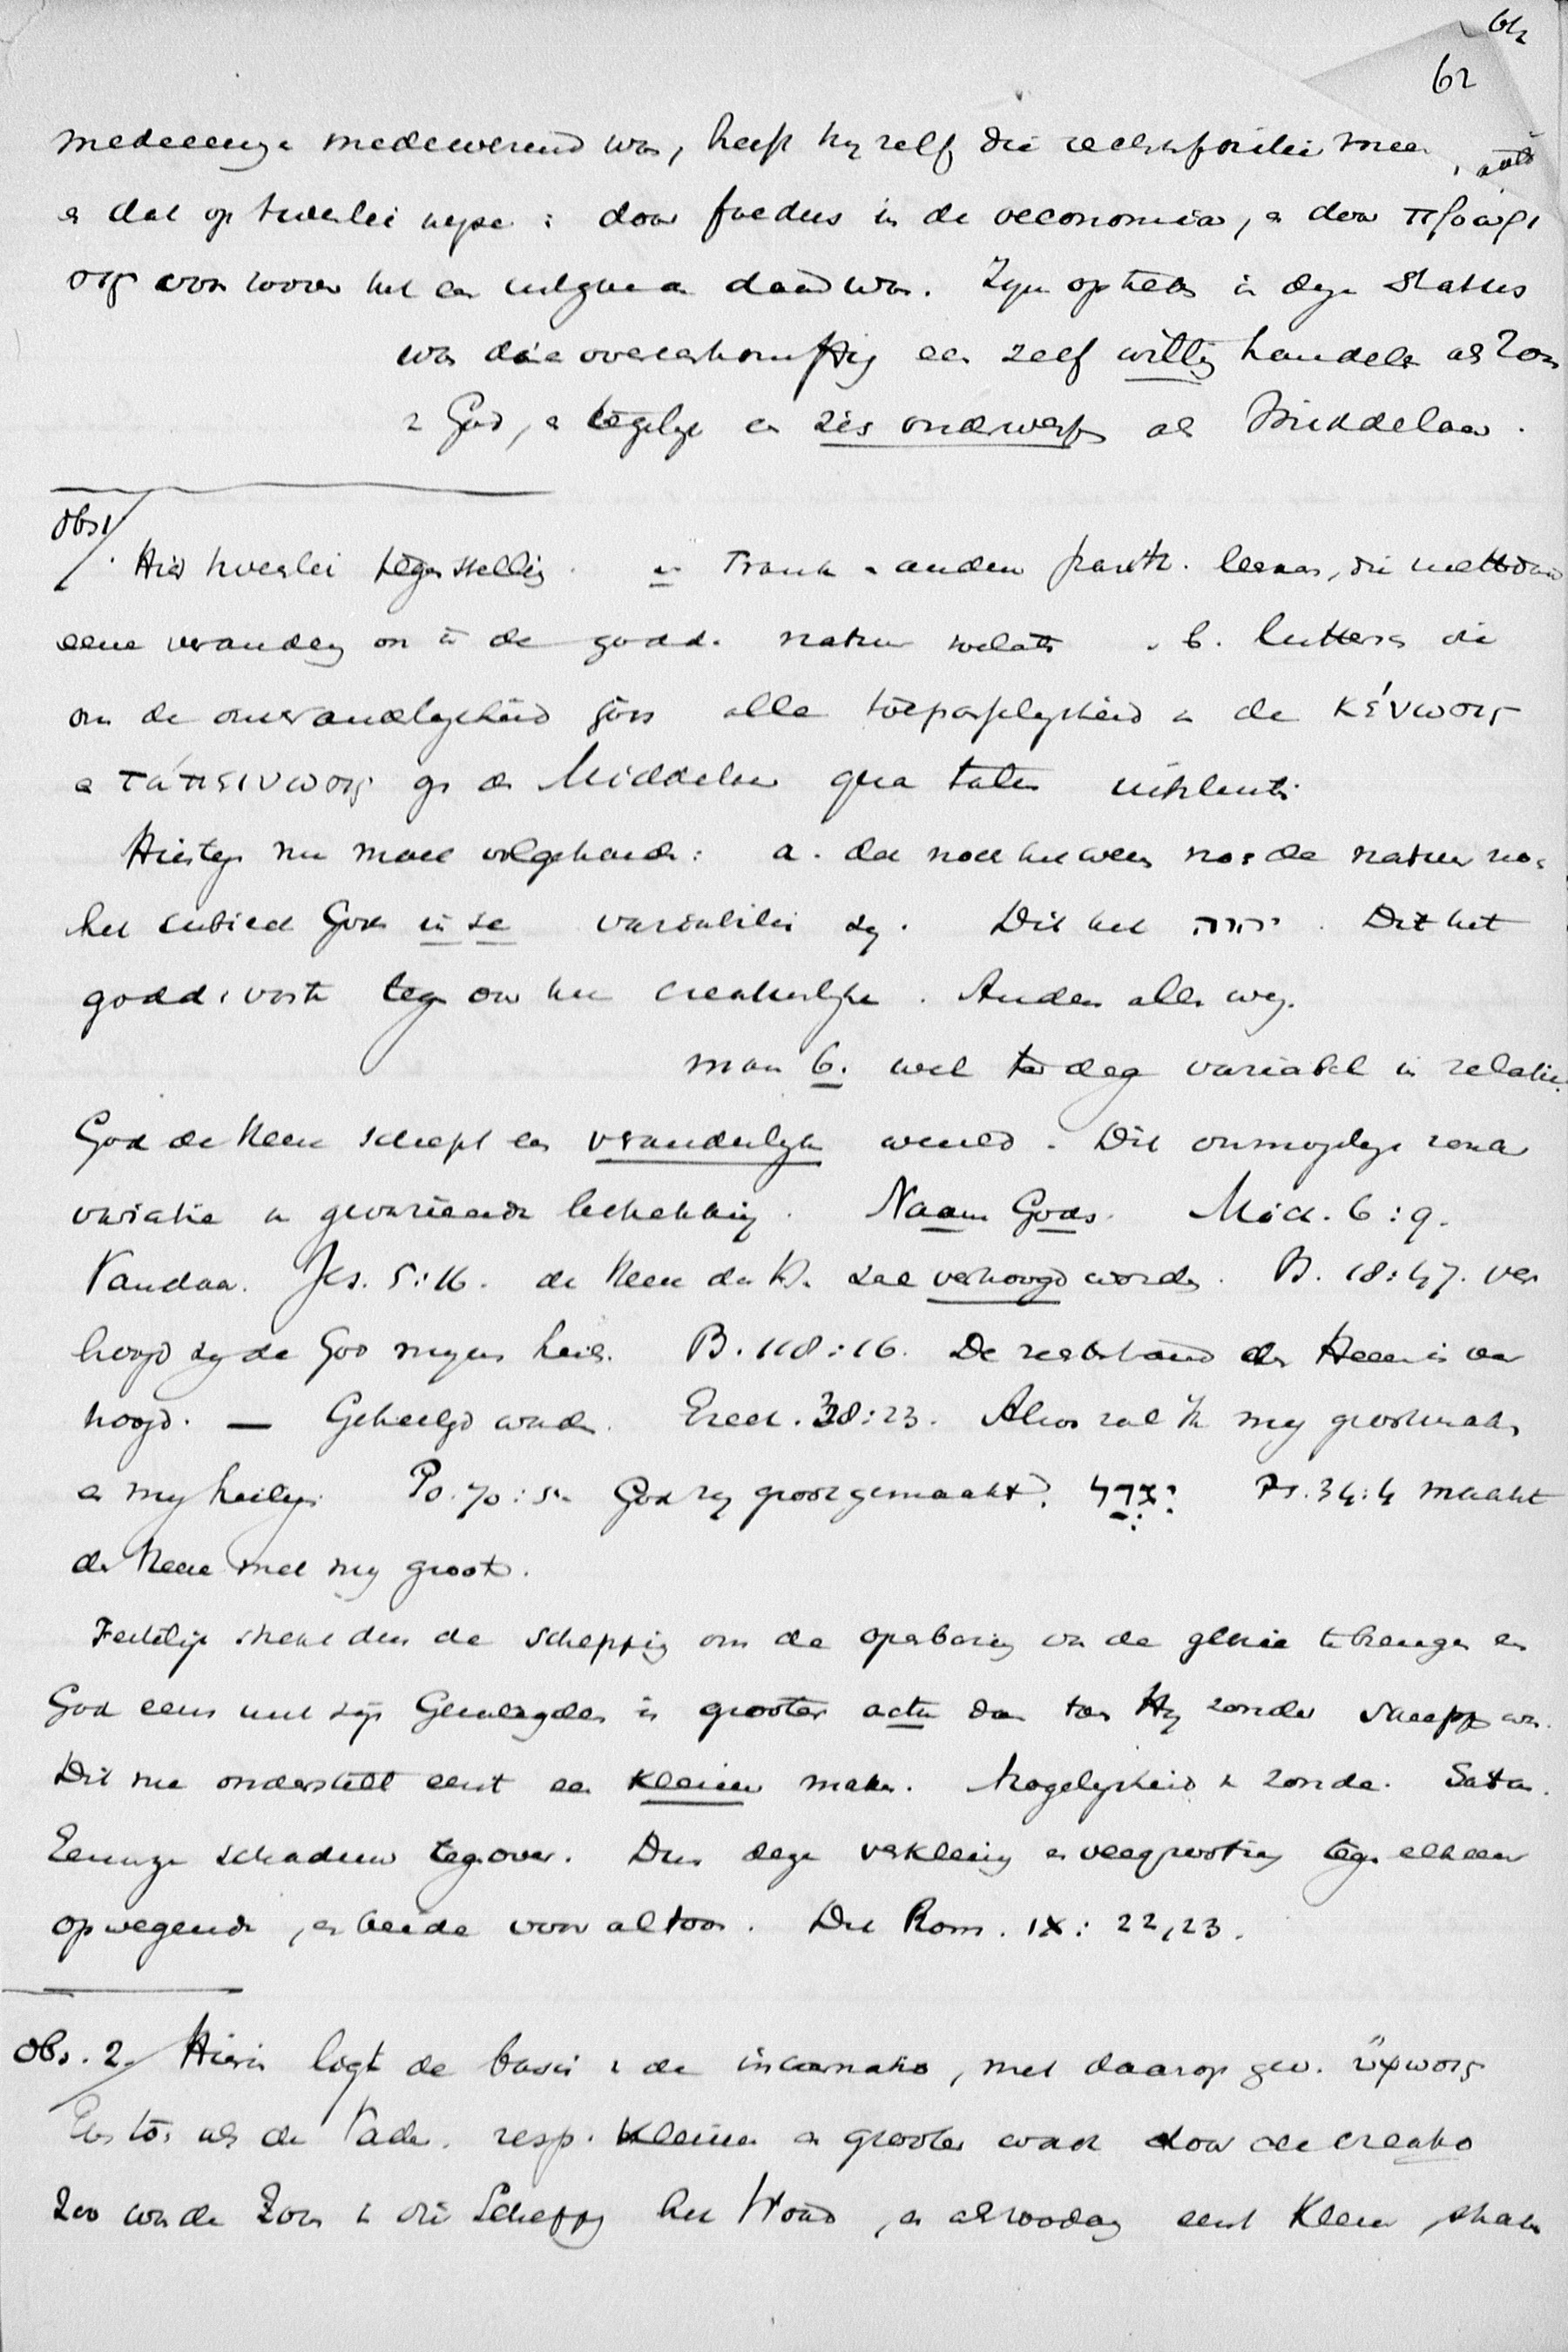 62
62
medeeeuwig & medewerkend was, heeft hy zelf die rechtspositie mee
& dat op tweeërlei wyze : door foedus in de oeconomia, & door προαίρε
σις voor zoover het een daad was. Zyn optreden in deze status
was dien overeenkomstig een zelf willig handelen als Zoon
v God, & tegelyk een zich onderwerpen als Middelaar.
Obs 1/. Hier tweeërlei tegenstelling. a. Frank & andere panth. leeraars, die
eene verandering in de godd. natuur . b. Luthersen die
om de onveranderlykheid Gods alle toepasselykheid v de κένωσις
& ταπείνωσις op de Middelaar qua talis uitsluiten
Hiertegen nu moet volgehouden: a. dat noch het wezen noch de natuur noch
het subject Gods in se variabilis zy. Dit het יהוה. Dit het
godd. vaste tegenover het creatuurlyke. Anders alles weg.
maar b. wel ter deeg variabel in relatie.
God de Heere schept een veranderlyke wereld. Dit onmogelyk zonder
variatie in gevarieerde betrekking. Naam Gods. Mich. 6:9.
Vandaar. Jes. 5:16. de Heere der H. zal verhoogd worden. Ps. 18:47. ver
hoogd zy de God myns heils. Ps. 118:16. De rechterhand des Heeren is ver
hoogd. — Geheiligd worden. Ezech. 38:23. Alzoo zal Ik my grootmaken
en my heiligen Ps. 70:5. God zy groot gemaakt. יגדל Ps. 34:4 maakt
den Heere met my groot.
Feitelyk strekt dan de schepping om de openbaring van de glorie te brengen en
God eens met zyn is grooter actu dan toen Hy zonder schepping was.
Dit nu onderstelt eerst een kleiner maken. Mogelykheid v zonde. Satan.
Eeuwige schaduw tegenover. Dus deze verkleining en vergrooting tegen elkaar
opwegende, en beide voor altoos. Dit Rom. IX: 22,23.
Obs. 2./ Hierin ligt de basis v de incarnatio, met daarop gev. ὕψωσις
Even toch als de Vader resp. kleiner en grooter wordt door de creatio
Zoo wordt de Zoon in die Schepping het Woord, en alzoodanig eerst kleiner, straks